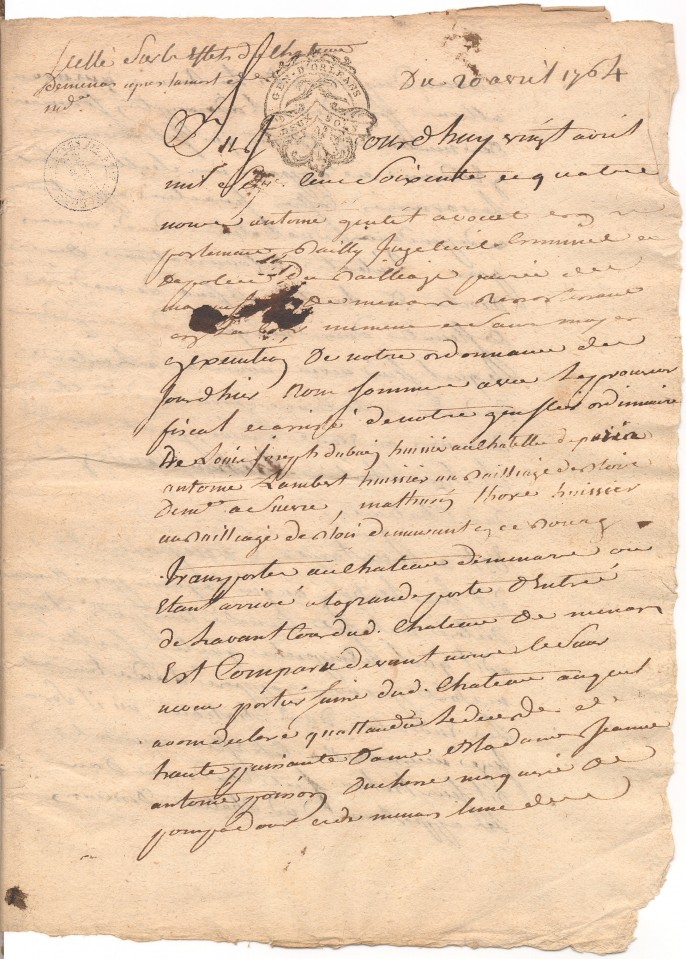 Scellé sur les effets du chateau
De menars apres la mort de
Mad.
GEN. D'ORLEANS
DEUX SOLS
Du 20 avril 1764
aujourd'huy vingt avril
mil sept cent soixante et quatre
nous antoine avocat en
parlement Bailly Juge Civil Criminel et
de police du Bailliage pairie et
marquisat de menars
en execution De notre ordonnance de
jourdhier Nous sommes avec le procureur
fiscal et de notre greffier ordinaire
De Louis joseph huissier au chatelet de paris
antoine Lambert huissier au Bailliage de Blois
dem.t a Suevre, mathurin thoré huissier
au Bailliage de Blois demeurant en ce Bourg
Transporté au chateau de menars ou
Etant arrivé a la grande porte d'Entrée
de l'avant Cour dud. Chateau De menars
Est Comparu devant nous le Sieur
portier suisse dud. Chateau auquel
avons declaré qu'attendu Le deces de
haute puissante Dame Madame Jeanne
antoine poisson Duchesse marquise De
pompadour et de menars